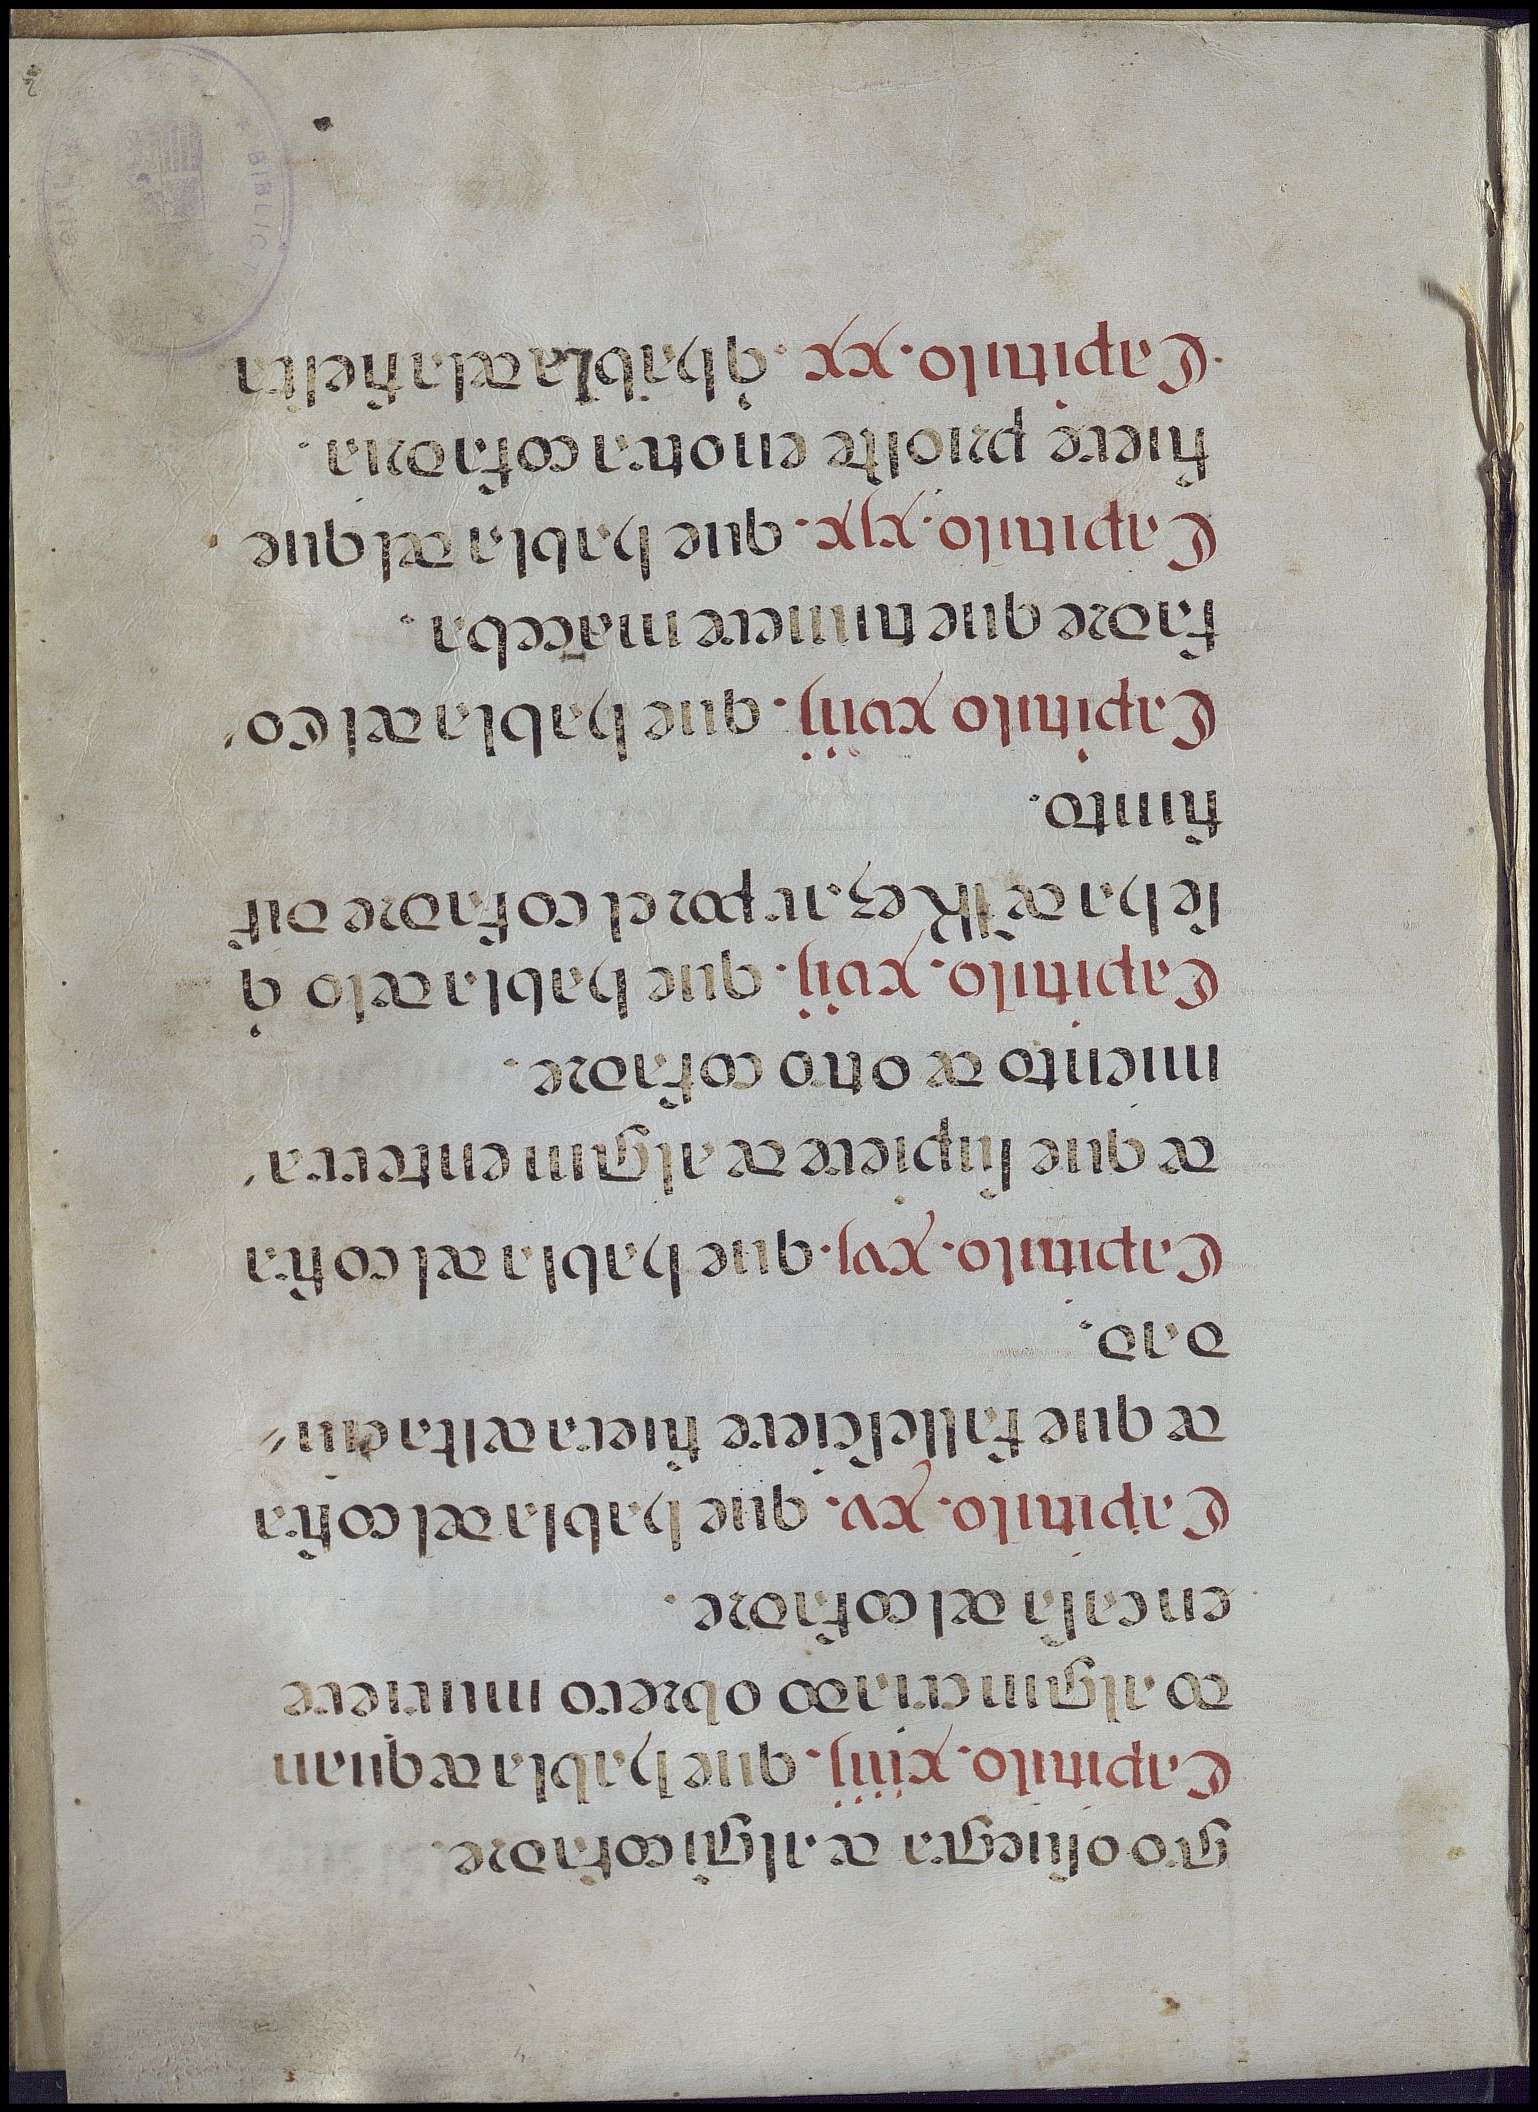 gro o suegra de algũ cofadre.
Capitulo. xiiij. que habla de quan
do algun criado obrero muriere
en casa del cofadre.
Capitulo. xv. que habla del cofra
de que fallesciere fuera desta ciu
dad.
Capitulo. xvj. que habla del cofra
de que supiere de algun enterra
miento de otro cofadre.
Capitulo. xvij. que habla delo q̃
se ha de Rezar por el cofadre dif
finto.
Capitulo xviij. que habla del co
fadre que tuuiere mãceba.
Capitulo. xix. que habla del que
fuere prioste en otra cofadria.
Capitulo. xx. q̃ habla dela fiesta
BIBLIOT